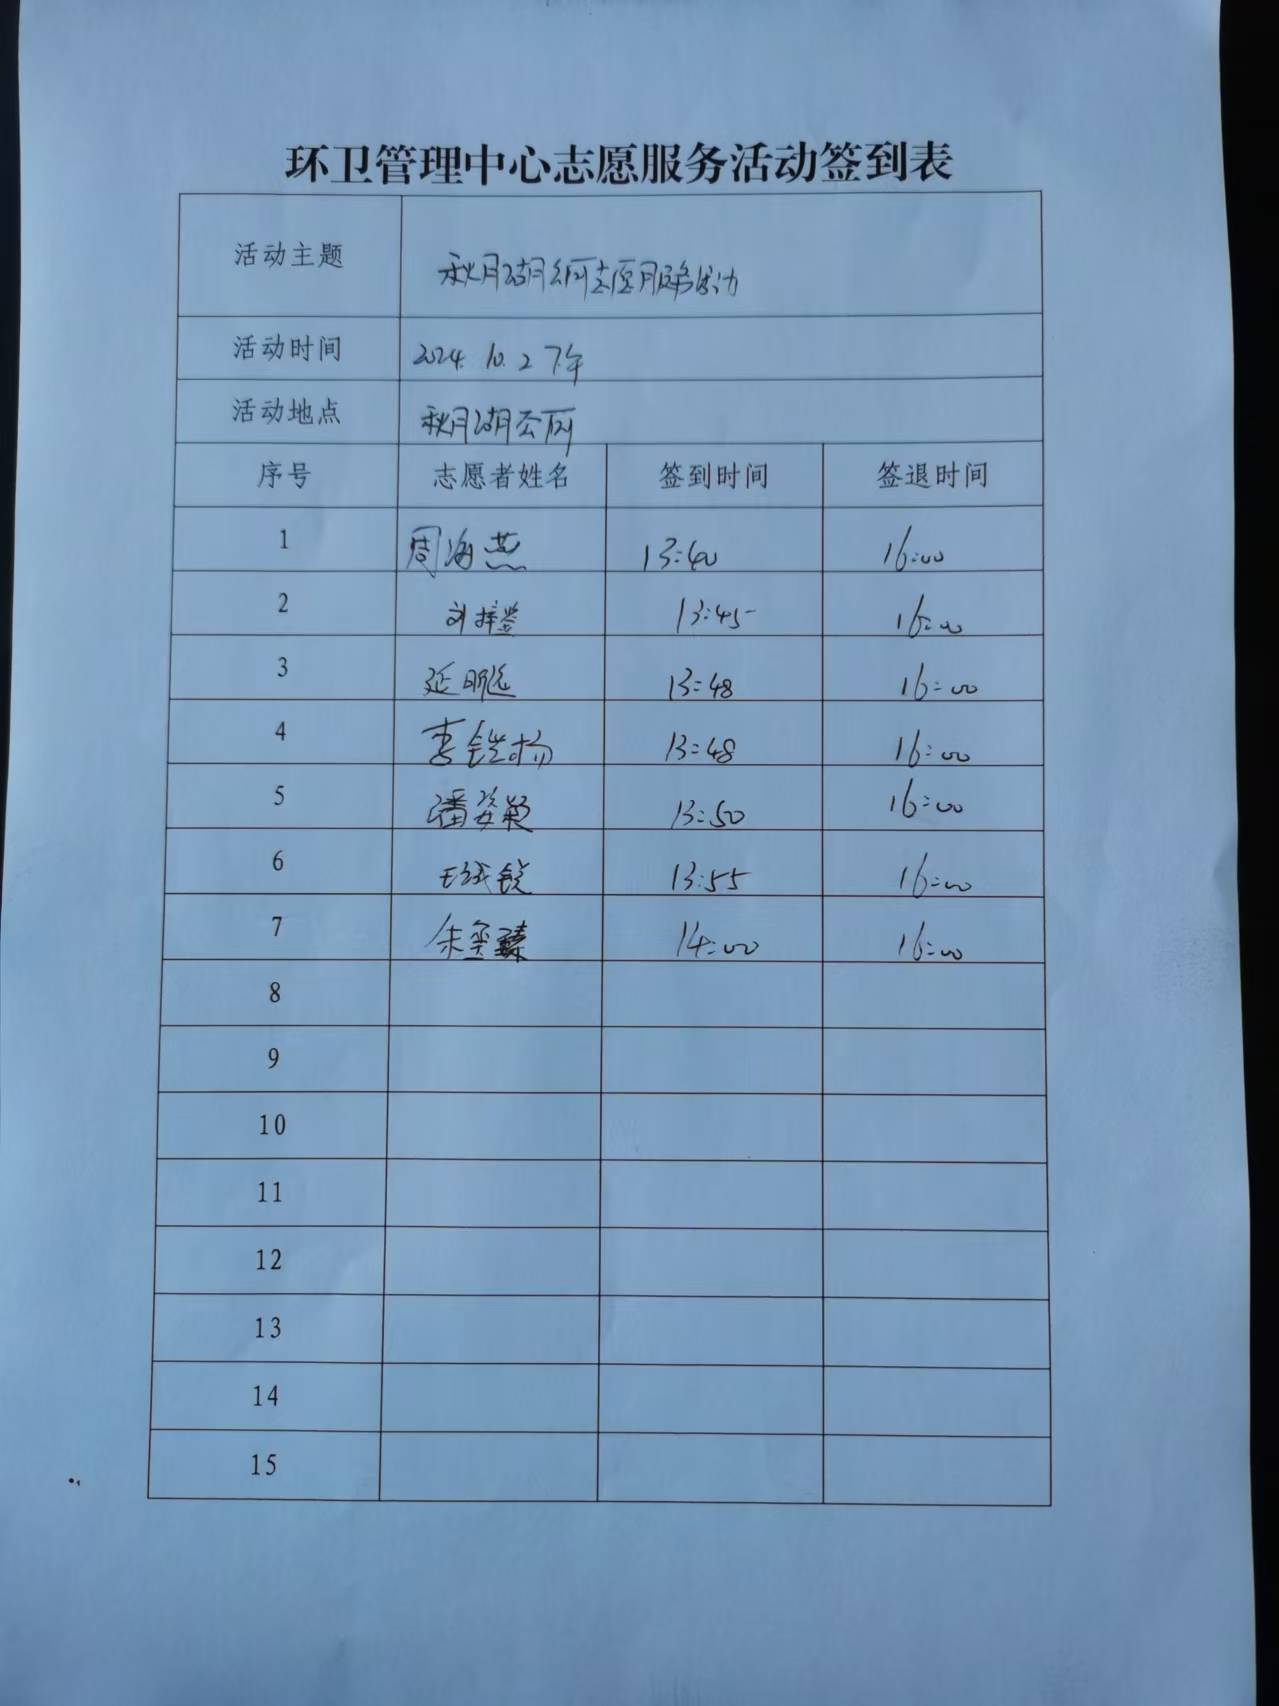 环卫管理中心志愿服务活动签到表
活动主题 秋月湖公园志愿服务活动
活动时间 2024.10.2 下午
活动地点 秋月湖公园
序号 志愿者姓名 签到时间 签退时间
1 周海燕 13:40 16:00
2 刘梓莹 13:45 16:00
3 延明远 13:48 16:00
4 李铠扬 13:48 16:00
5 潘姿颖 13:50 16:00
6 13:55 16:00
7 朱奕臻 14:00 16:00
8
9
10
11
12
13
14
15